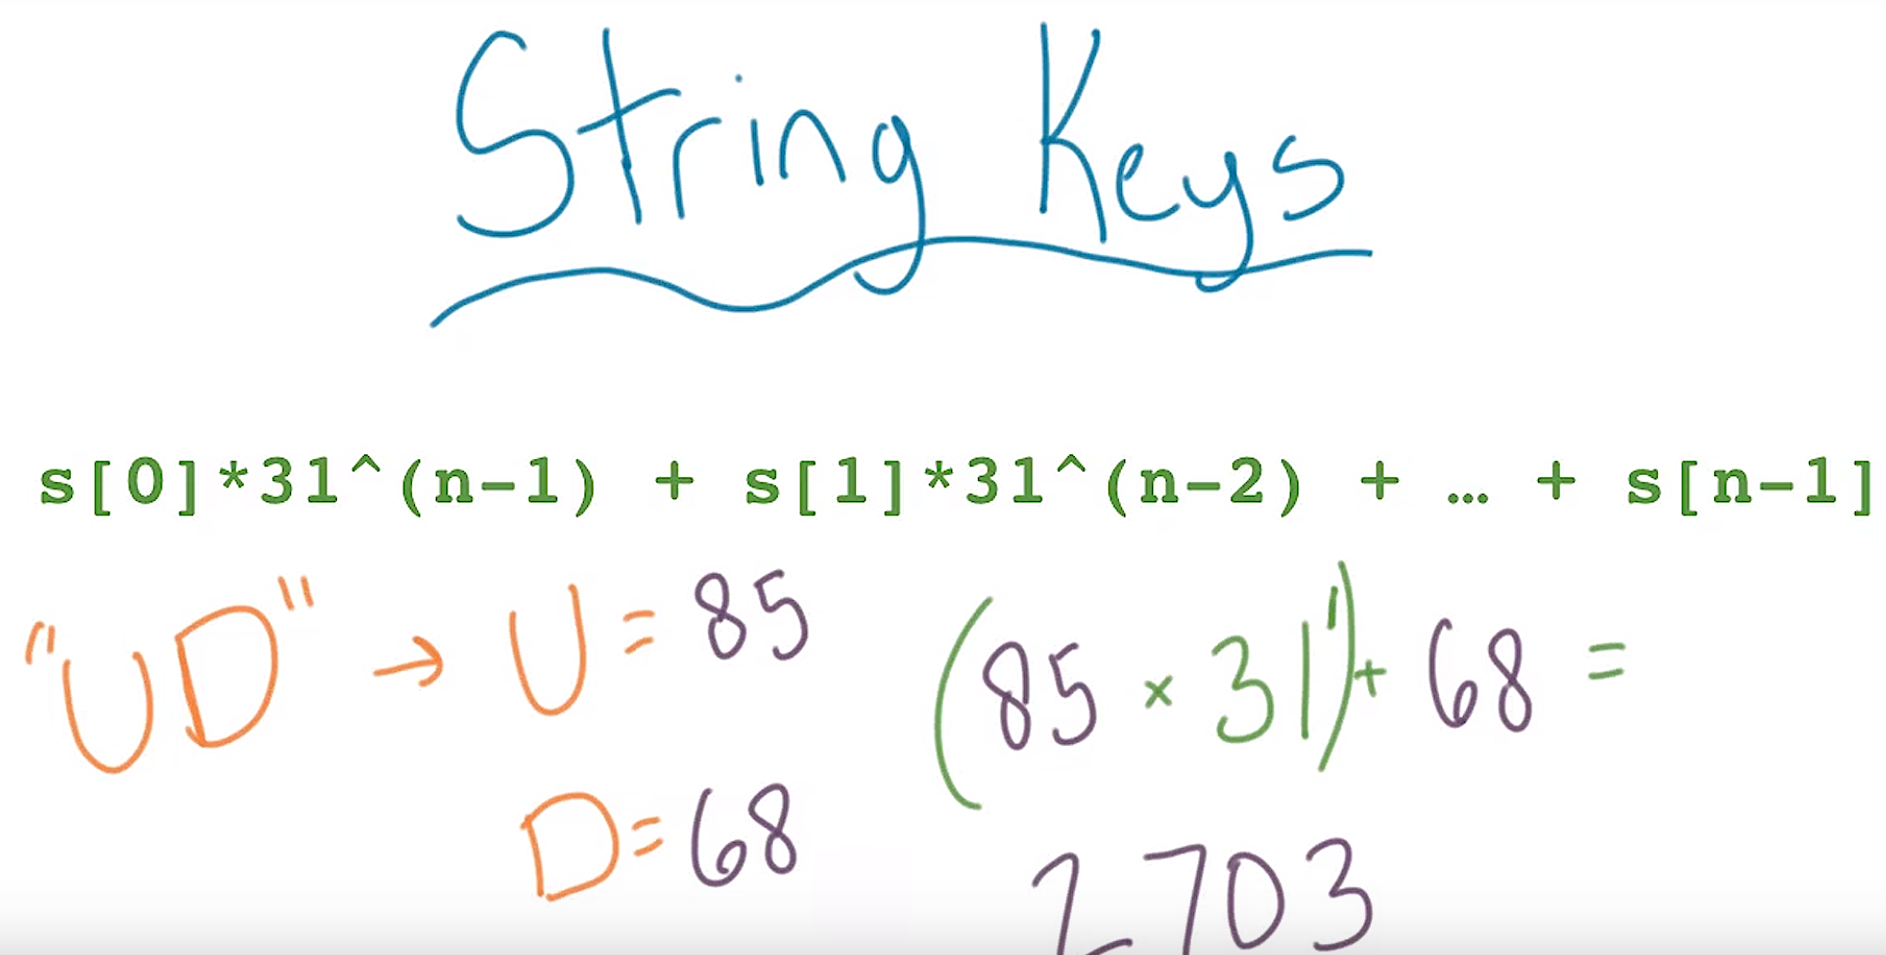 String Keys
s[0]*31^(n-1) + s[1]*31^(n-2) + … + s[n-1]
"UD" → U = 85
(85 × 31¹) + 68 =
D = 68
2703